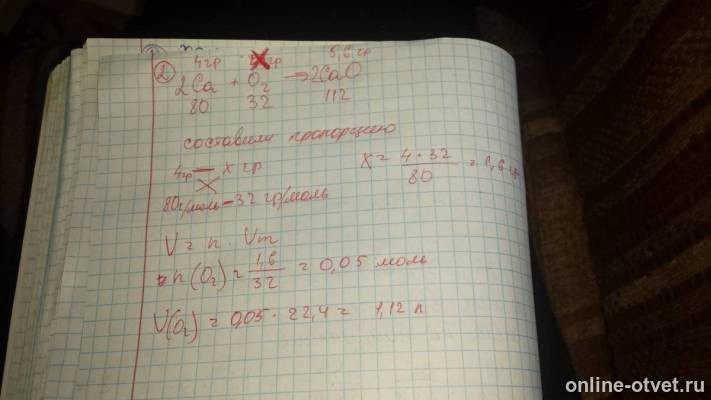 4гр гр 5,6 гр
② 2Ca + O₂ → 2CaO
80 32 112
составим пропорцию
4гр — x гр
80г/моль – 32 гр/моль
X = 4 · 32 / 80 = 1,6 гр
V = n · Vm
n(O₂) = 1,6 / 32 = 0,05 моль
V(O₂) = 0,05 · 22,4 = 1,12 л
online-otvet.ru